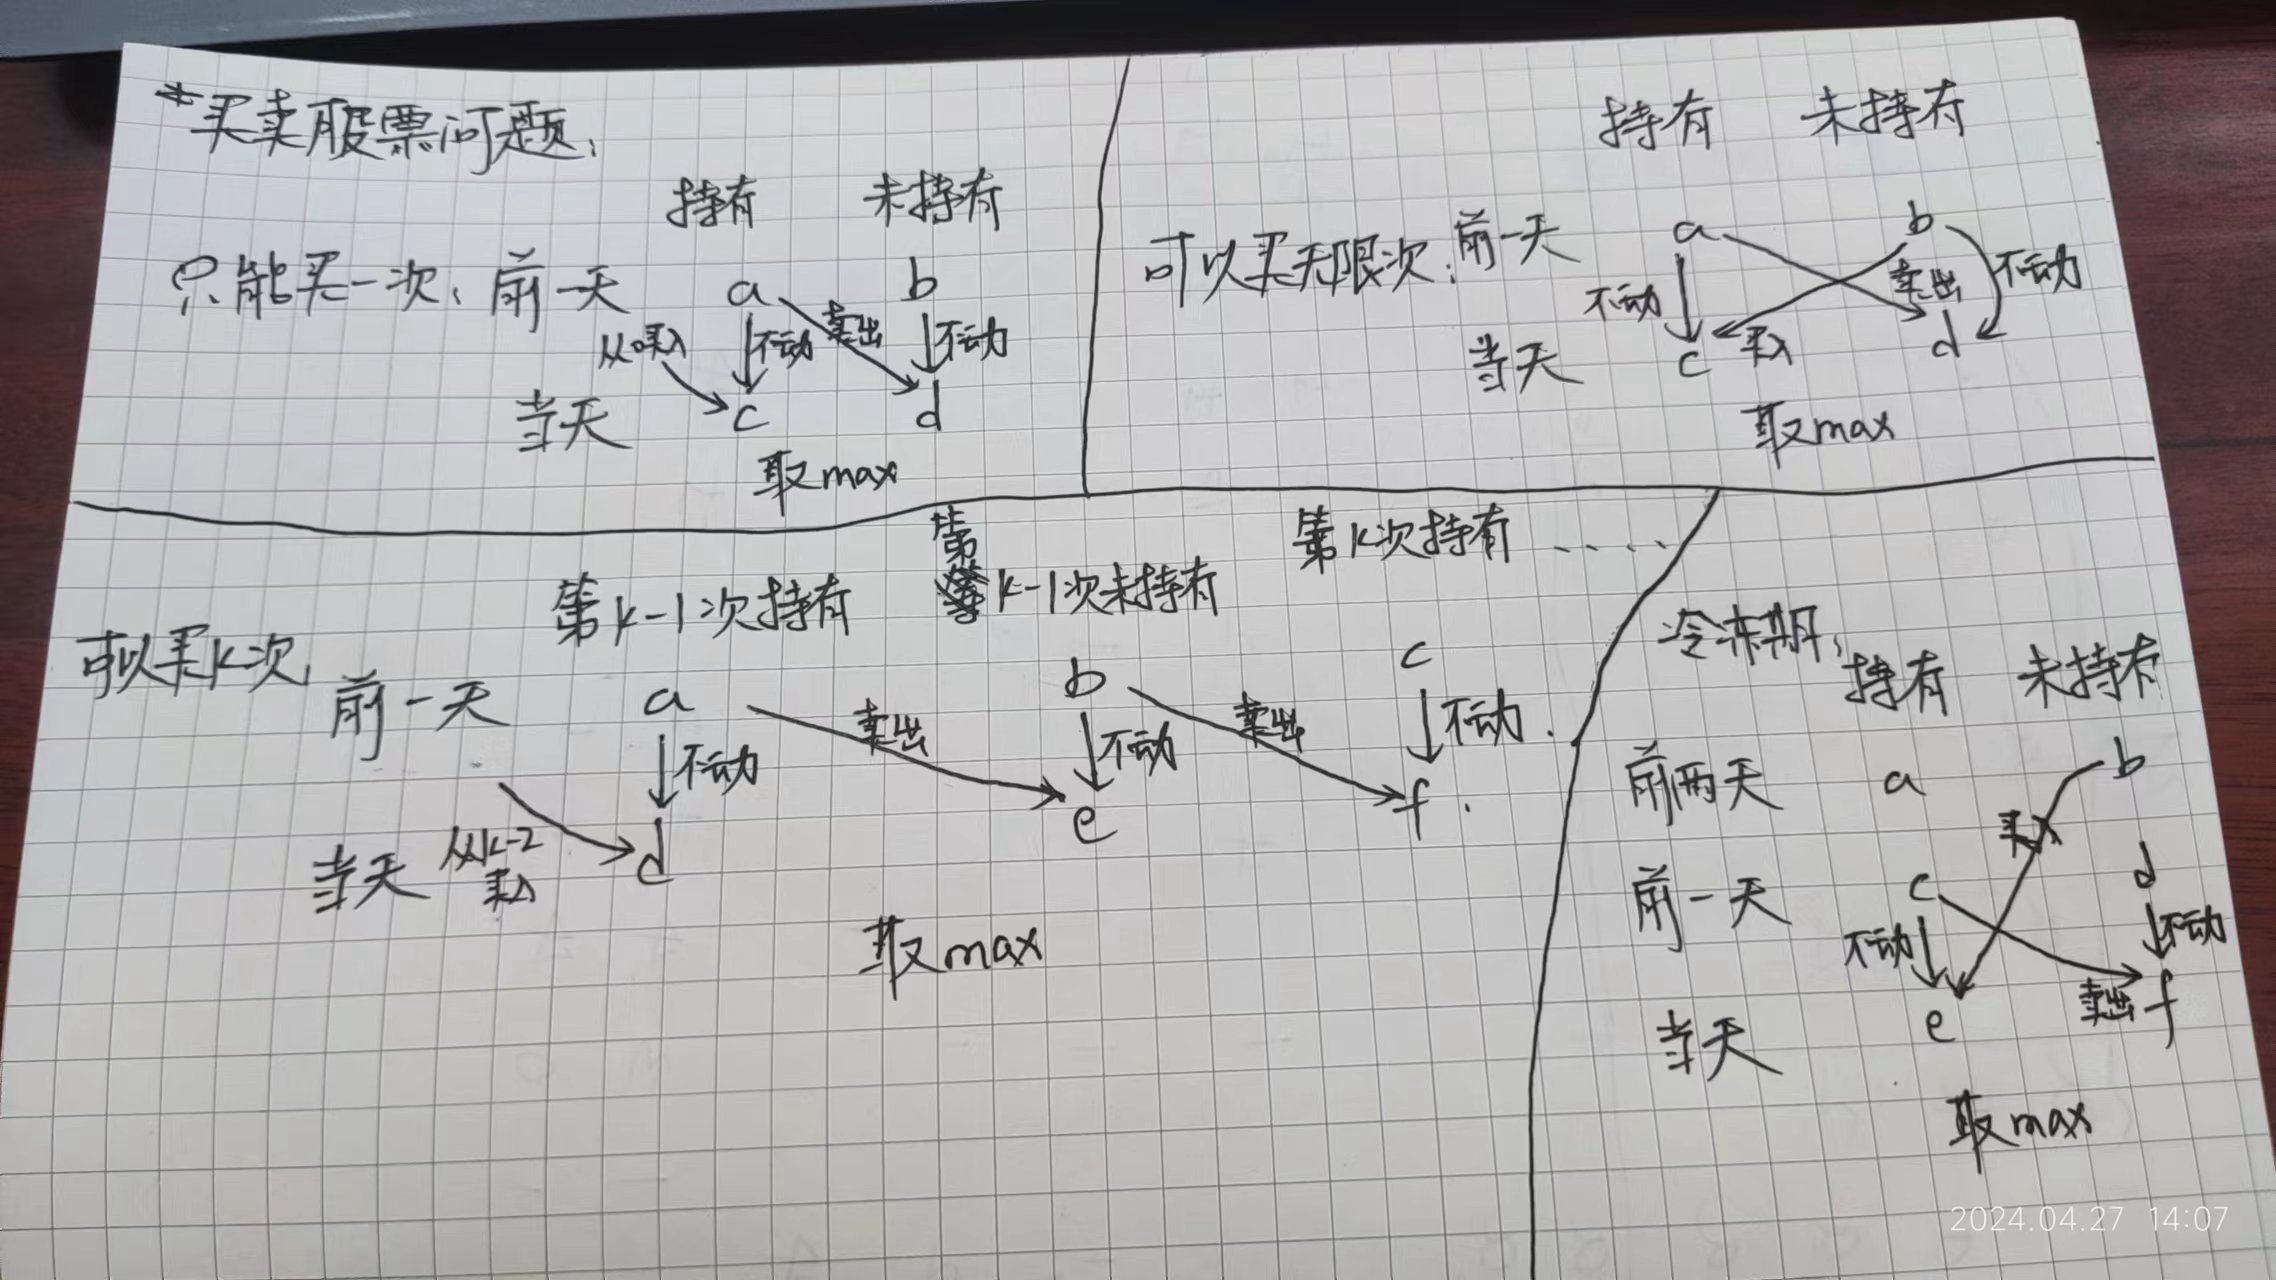 *买卖股票问题:
持有 未持有
只能买一次: 前一天 a b
从0买入 不动 卖出 不动
当天 c d
取max
持有 未持有
可以买无限次: 前一天 a b
不动 卖出 不动
当天 c 买入 d
取max
第k-1次持有 第k-1次未持有 第k次持有 .....
可以买k次:
前一天 a b c
不动 卖出 不动 卖出 不动.
当天 从k-2买入 d e f.
取max
冷冻期:
持有 未持有
前两天 a b
买入
前一天 c d
不动 不动
卖出
当天 e f
取max
2024.04.27 14:07